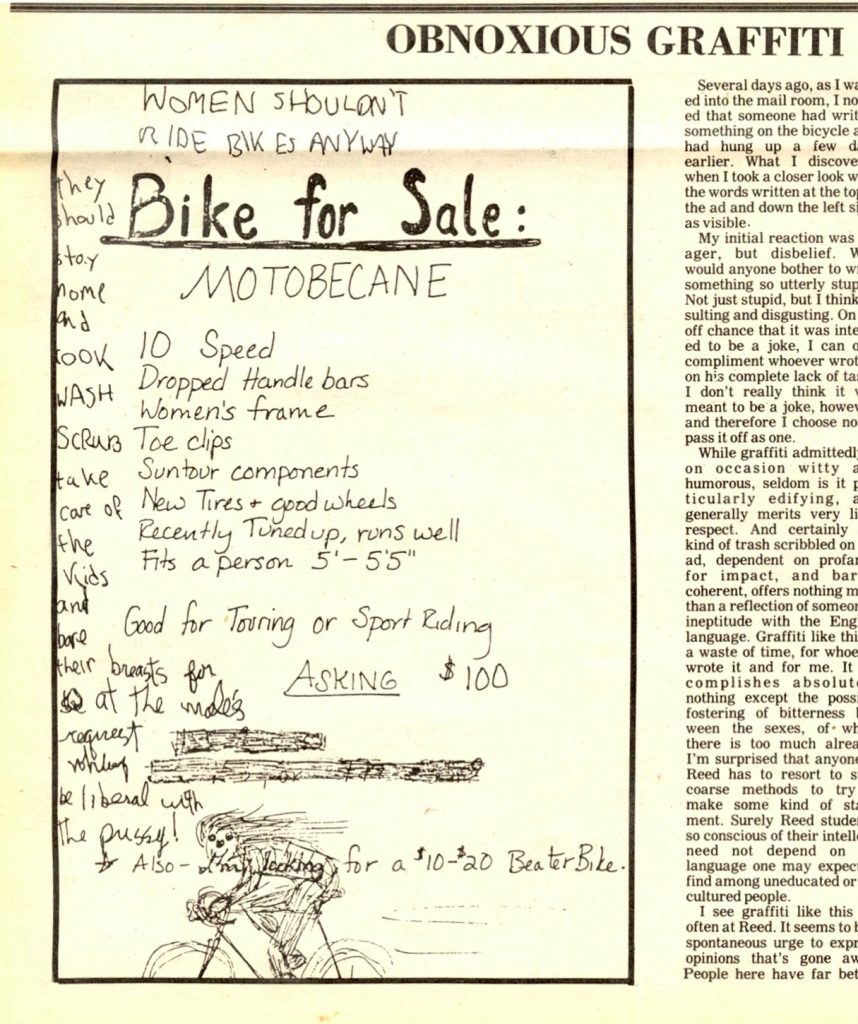 OBNOXIOUS GRAFFITI
WOMEN SHOULDN'T
RIDE BIKES ANYWAY
Bike for Sale:
MOTOBECANE
10 Speed
Dropped Handle bars
Women's frame
Toe clips
Suntour components
New Tires + good wheels
Recently Tuned up, runs well
Fits a person 5'-5'5"
Good for Touring or Sport Riding
ASKING $100
Also - looking for a $10-$20 Beater Bike.
they
should
stay
home
and
cook
WASH
SCRUB
take
care of
the
kids
and
bare
their breasts for
at the male's
request
be liberal with
the pussy!
Several days ago, as I wa
ed into the mail room, I no
ed that someone had writ
something on the bicycle a
had hung up a few da
earlier. What I discove
when I took a closer look w
the words written at the top
the ad and down the left si
as visible.
My initial reaction was
ager, but disbelief. W
would anyone bother to w
something so utterly stup
Not just stupid, but I think
sulting and disgusting. On
off chance that it was inte
ed to be a joke, I can o
compliment whoever wrot
on his complete lack of ta
I don't really think it w
meant to be a joke, howev
and therefore I choose no
pass it off as one.
While graffiti admittedly
on occasion witty a
humorous, seldom is it p
ticularly edifying, a
generally merits very li
respect. And certainly
kind of trash scribbled on
ad, dependent on profan
for impact, and bar
coherent, offers nothing m
than a reflection of someon
ineptitude with the Eng
language. Graffiti like thi
a waste of time, for whoe
wrote it and for me. It
complishes absolute
nothing except the poss
fostering of bitterness b
ween the sexes, of wh
there is too much alrea
I'm surprised that anyone
Reed has to resort to s
coarse methods to try
make some kind of sta
ment. Surely Reed stude
so conscious of their intelle
need not depend on
language one may expect
find among uneducated or
cultured people.
I see graffiti like this
often at Reed. It seems to b
spontaneous urge to expr
opinions that's gone aw
People here have far bet